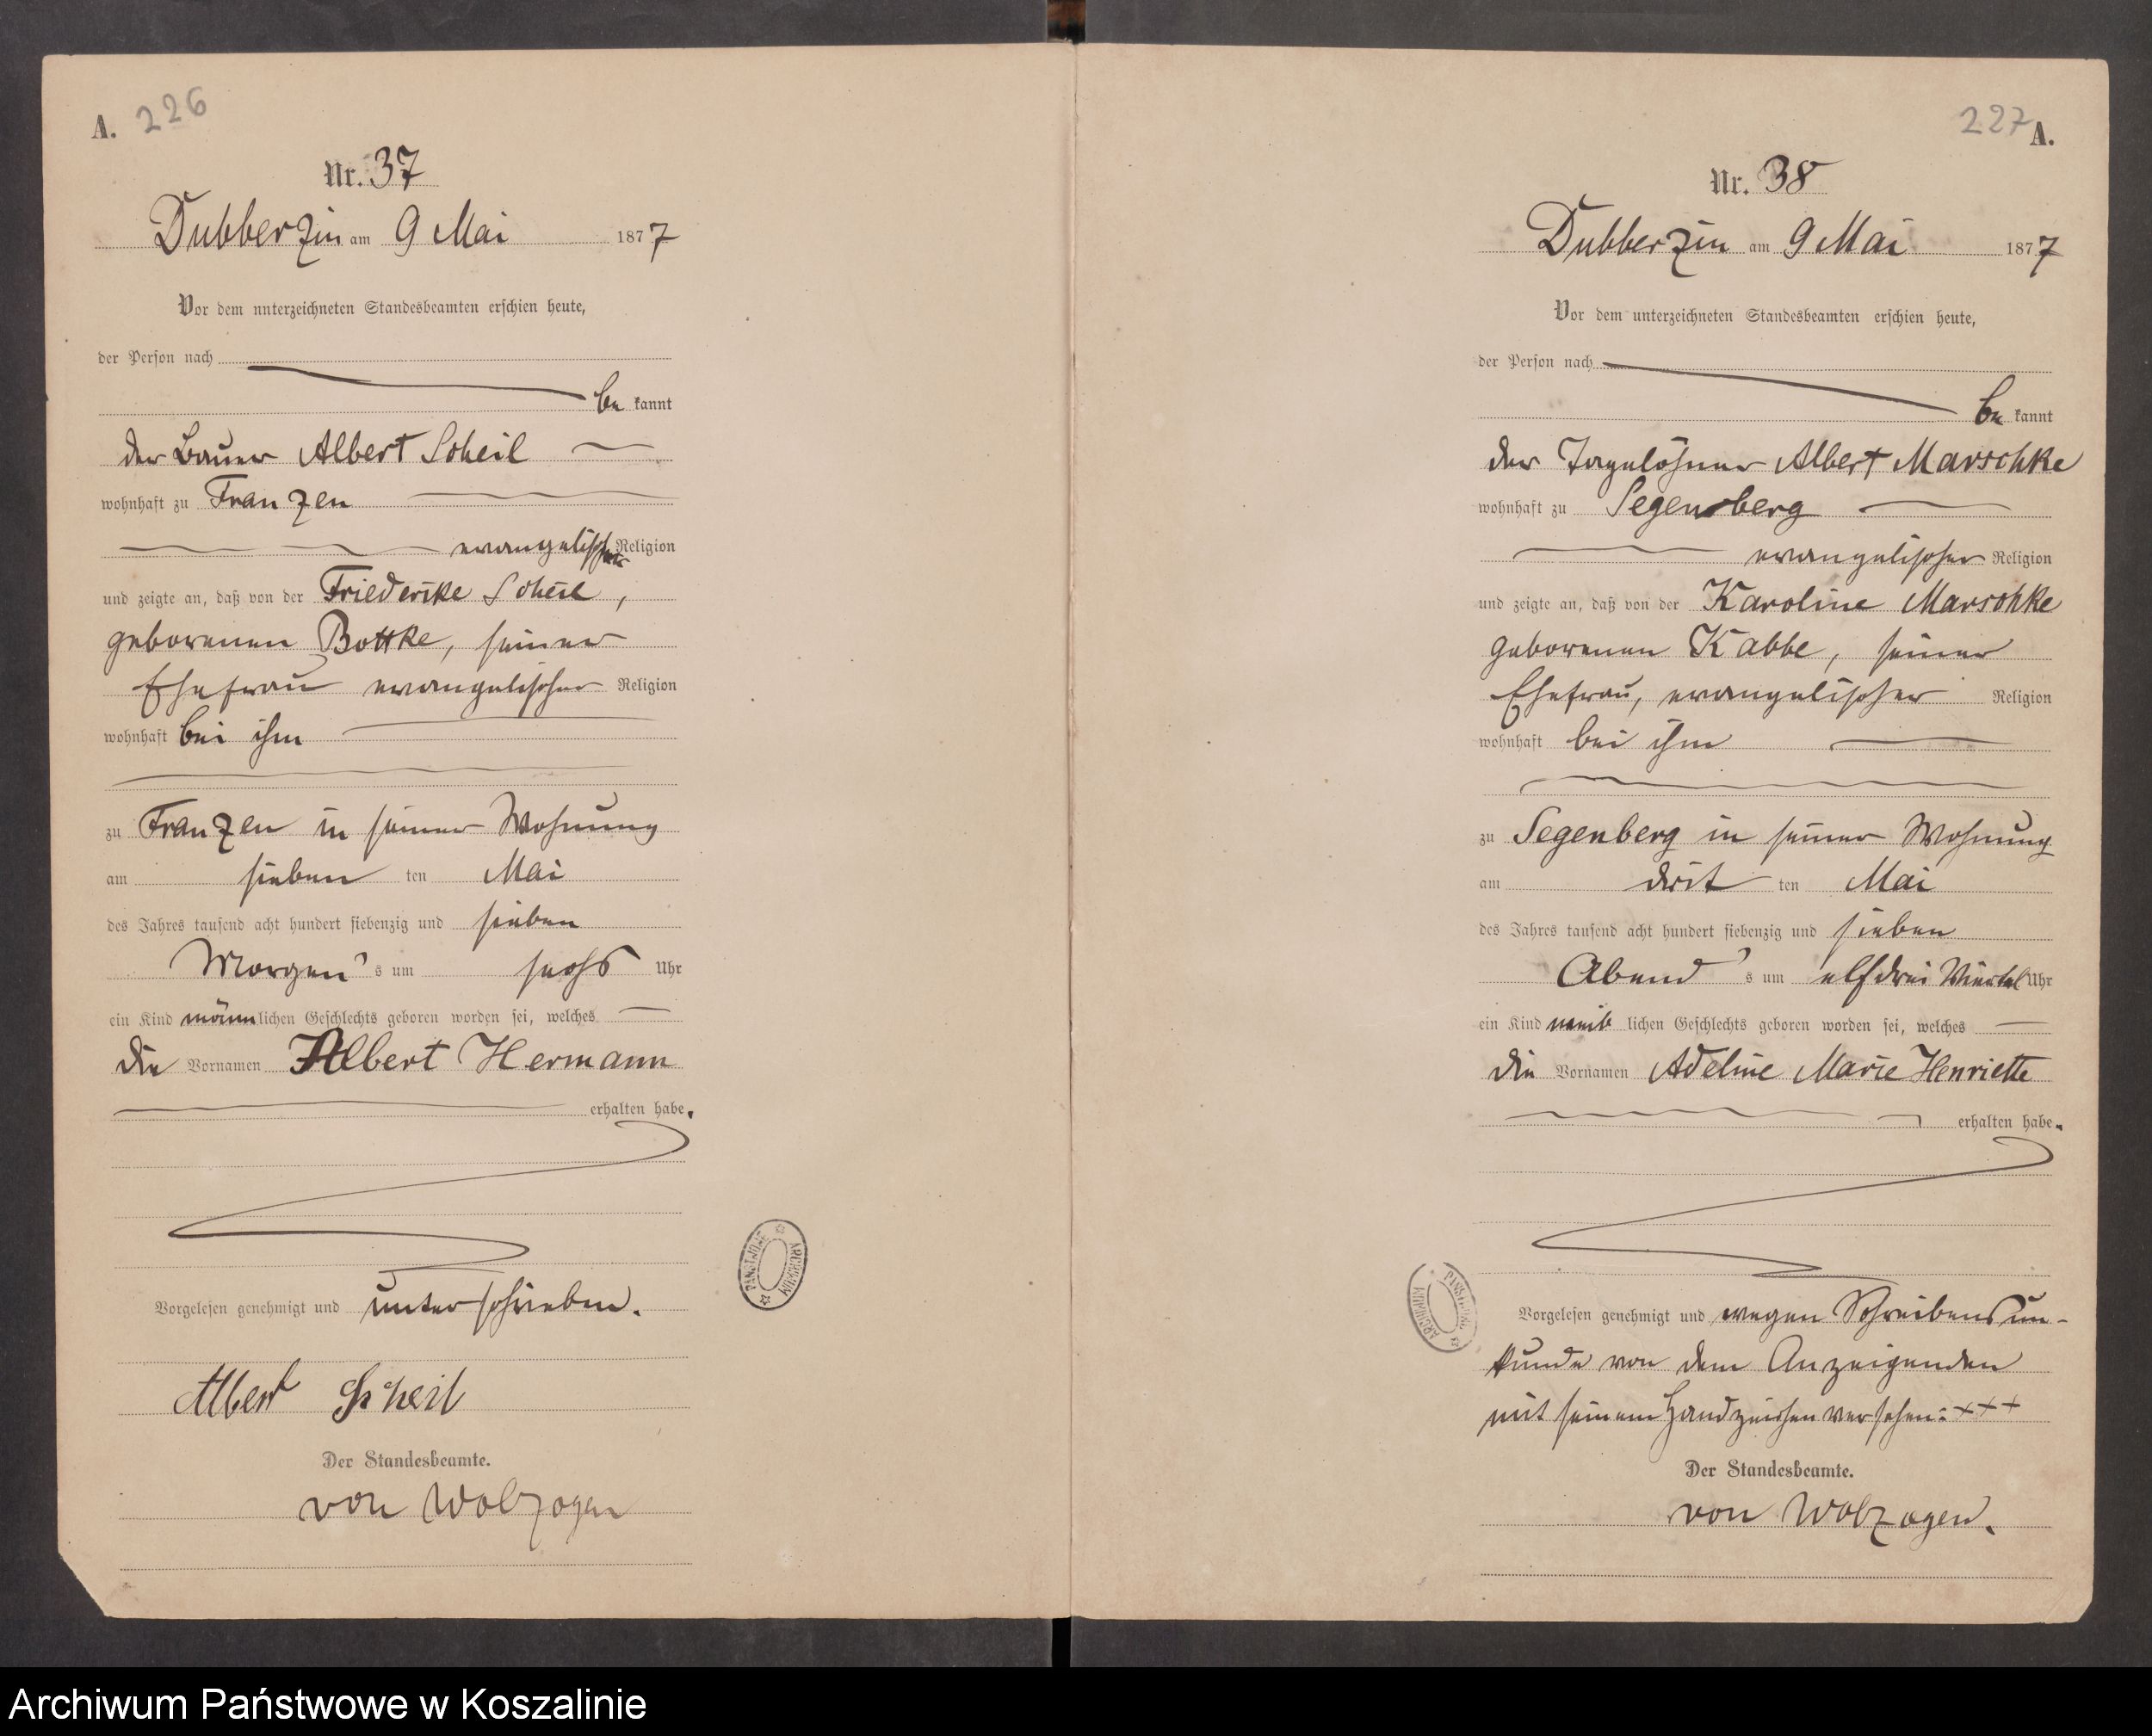 A. 226
Nr. 37
Dubberzin am 9 Mai 1877
Vor dem unterzeichneten Standesbeamten erschien heute,
der Person nach
be kannt
der Bauer Albert Scheil
wohnhaft zu Franzen
evangelischer Religion
und zeigte an, daß von der Friederike Scheil,
geborenen Bottke, seiner
Ehefrau evangelischer Religion
wohnhaft bei ihm
zu Franzen in seiner Wohnung
am sieben ten Mai
des Jahres tausend acht hundert siebenzig und sieben
Morgen's um sechs Uhr
ein Kind männlichen Geschlechts geboren worden sei, welches
die Vornamen Albert Hermann
erhalten habe.
Vorgelesen genehmigt und unterschrieben.
Albert Scheil
Der Standesbeamte.
von Wolzogen
ARCHIWUM PAŃSTWOWE
227 A.
Nr. 38
Dubberzin am 9 Mai 1877
Vor dem unterzeichneten Standesbeamten erschien heute,
der Person nach
be kannt
der Tagelöhner Albert Marschke
wohnhaft zu Segenberg
evangelischer Religion
und zeigte an, daß von der Karoline Marschke
geborenen Kabbe, seiner
Ehefrau, evangelischer Religion
wohnhaft bei ihm
zu Segenberg in seiner Wohnung
am drit ten Mai
des Jahres tausend acht hundert siebenzig und sieben
Abend's um elf drei Viertel Uhr
ein Kind weib lichen Geschlechts geboren worden sei, welches
die Vornamen Adeline Marie Henriette
erhalten habe.
Vorgelesen genehmigt und wegen Schreibensun-
kunde von dem Anzeigenden
mit seinem Handzeichen versehen: +++
Der Standesbeamte.
von Wolzogen.
ARCHIWUM PAŃSTWOWE
Archiwum Państwowe w Koszalinie